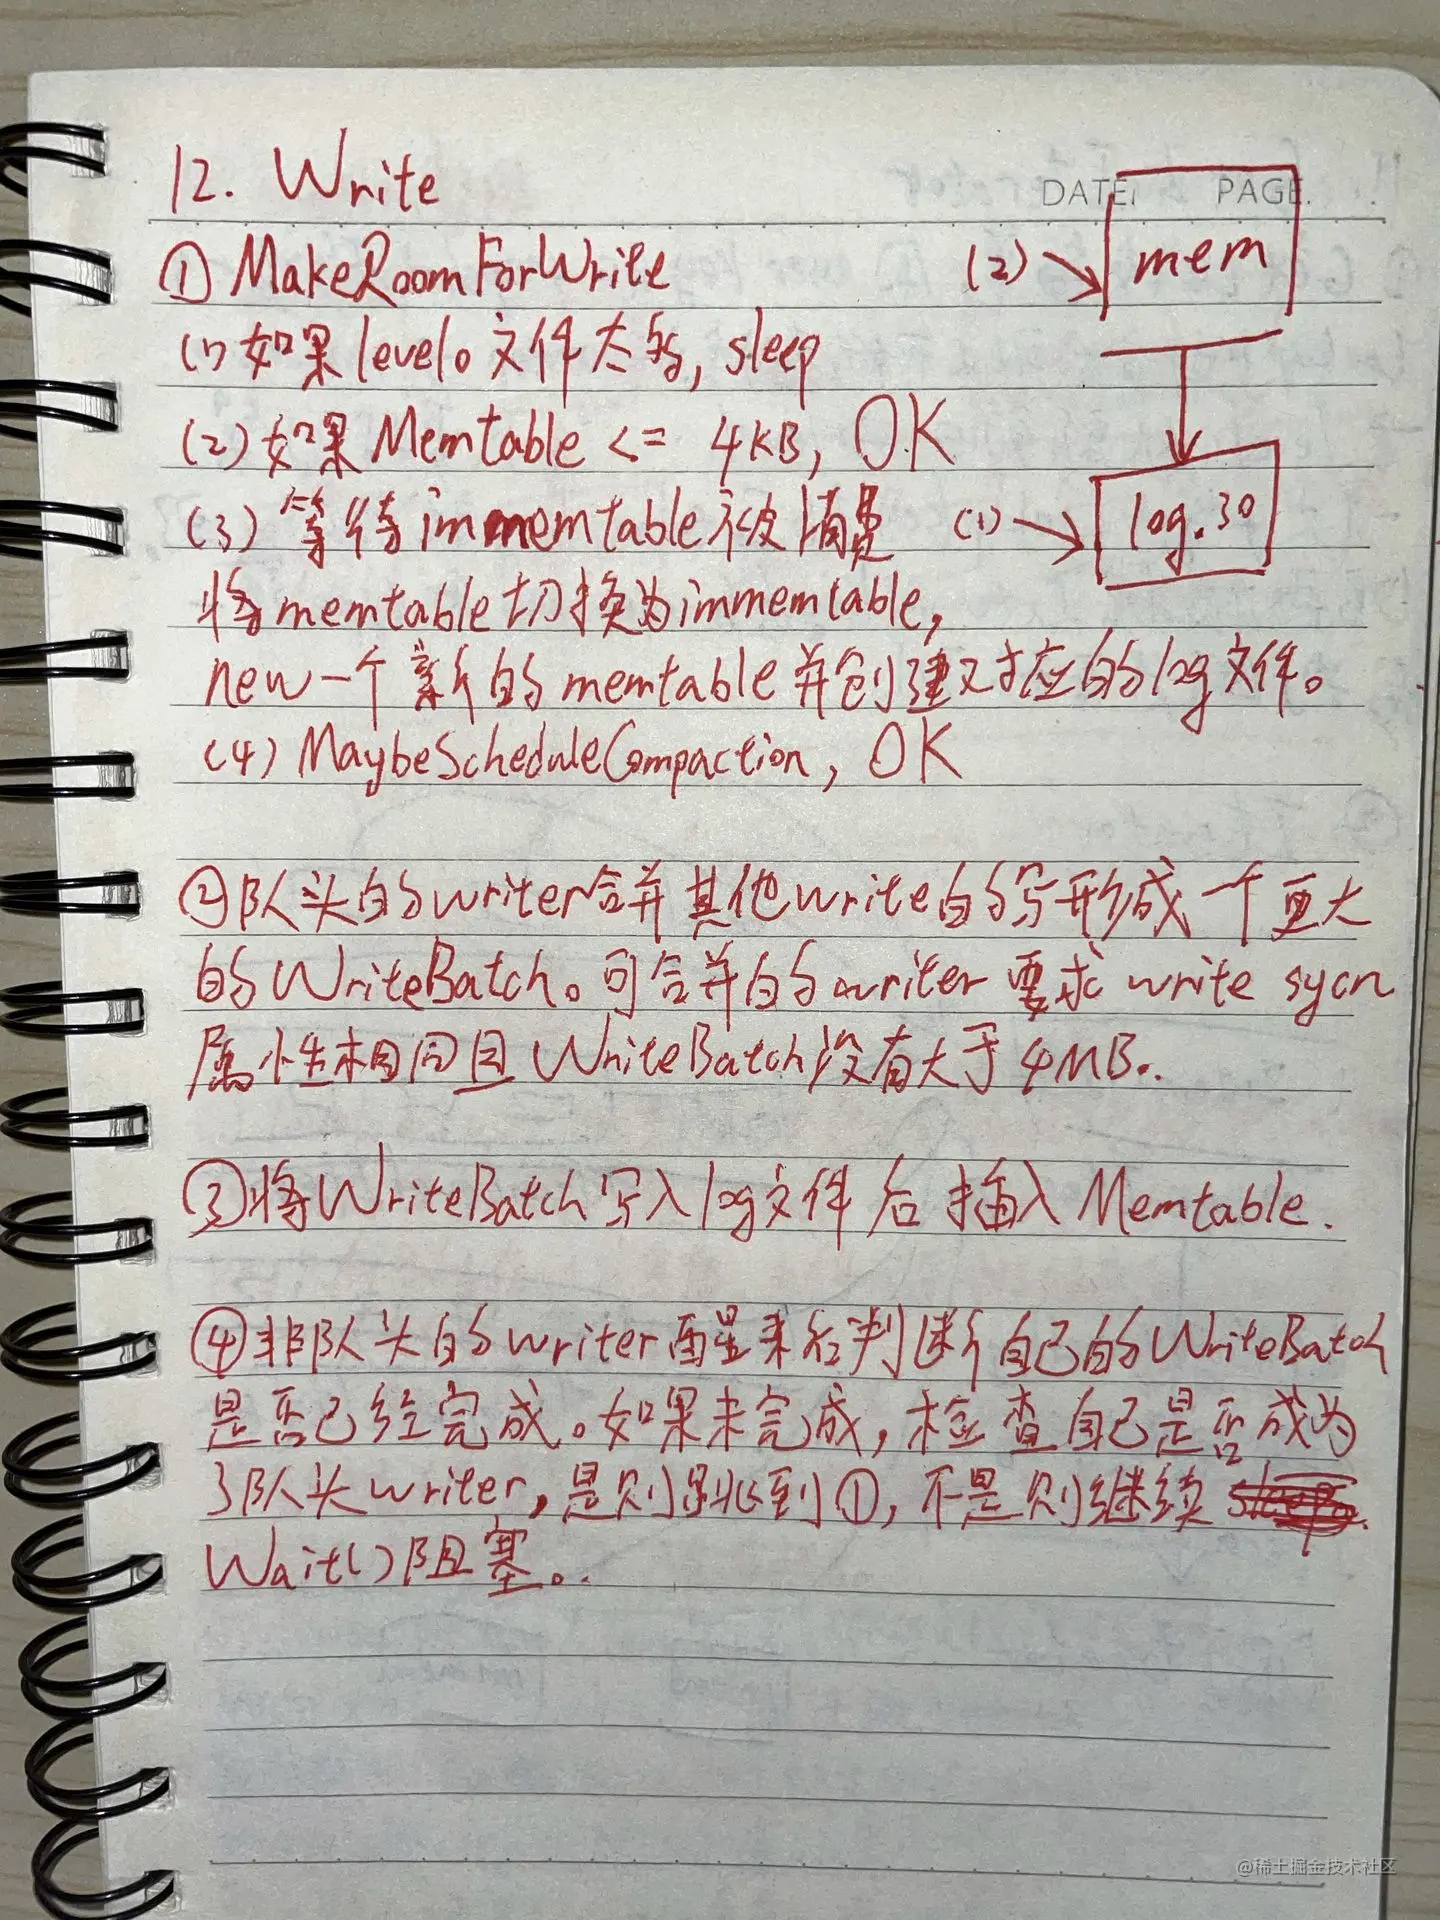 12. Write
DATE. PAGE.
① MakeRoomForWrite
(2) mem
(1) 如果level0文件太多, sleep
(2) 如果Memtable <= 4KB, OK
(3) 等待immemtable被消费
(1) log.30
将memtable切换为immemtable,
new一个新的memtable并创建对应的log文件。
(4) MaybeScheduleCompaction, OK
②队头的writer合并其他write的写形成一个更大
的WriteBatch。可合并的writer要求write sycn
属性相同且WriteBatch没有大于4MB.
③将WriteBatch写入log文件后插入Memtable.
④非队头的writer醒来后判断自己的WriteBatch
是否已经完成。如果未完成, 检查自己是否成为
了队头writer, 是则跳到①, 不是则继续
Wait()阻塞。
@稀土掘金技术社区